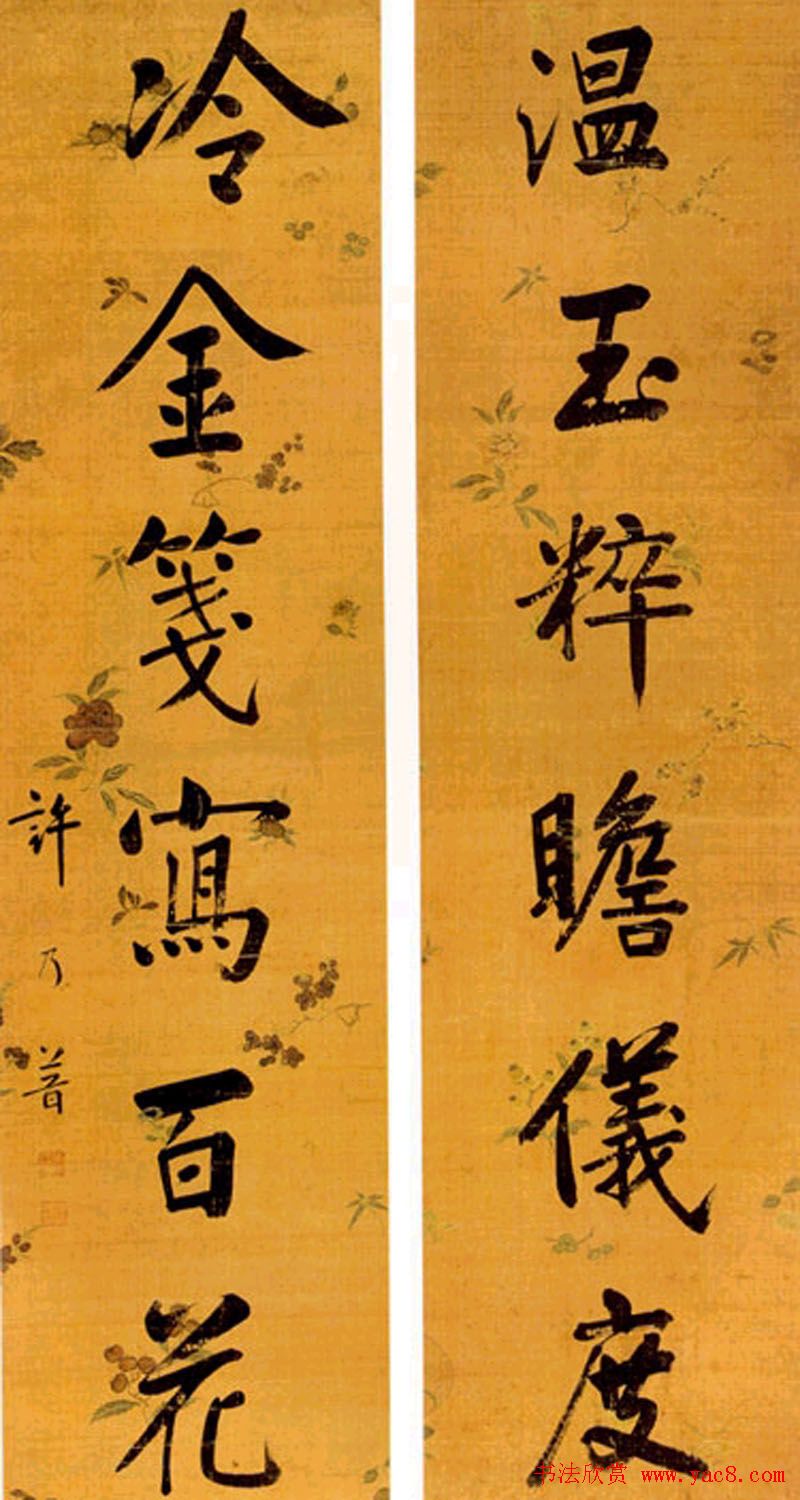 温玉粹瞻儀度
冷金箋寫百花
許乃普
书法欣赏 www.yac8.com